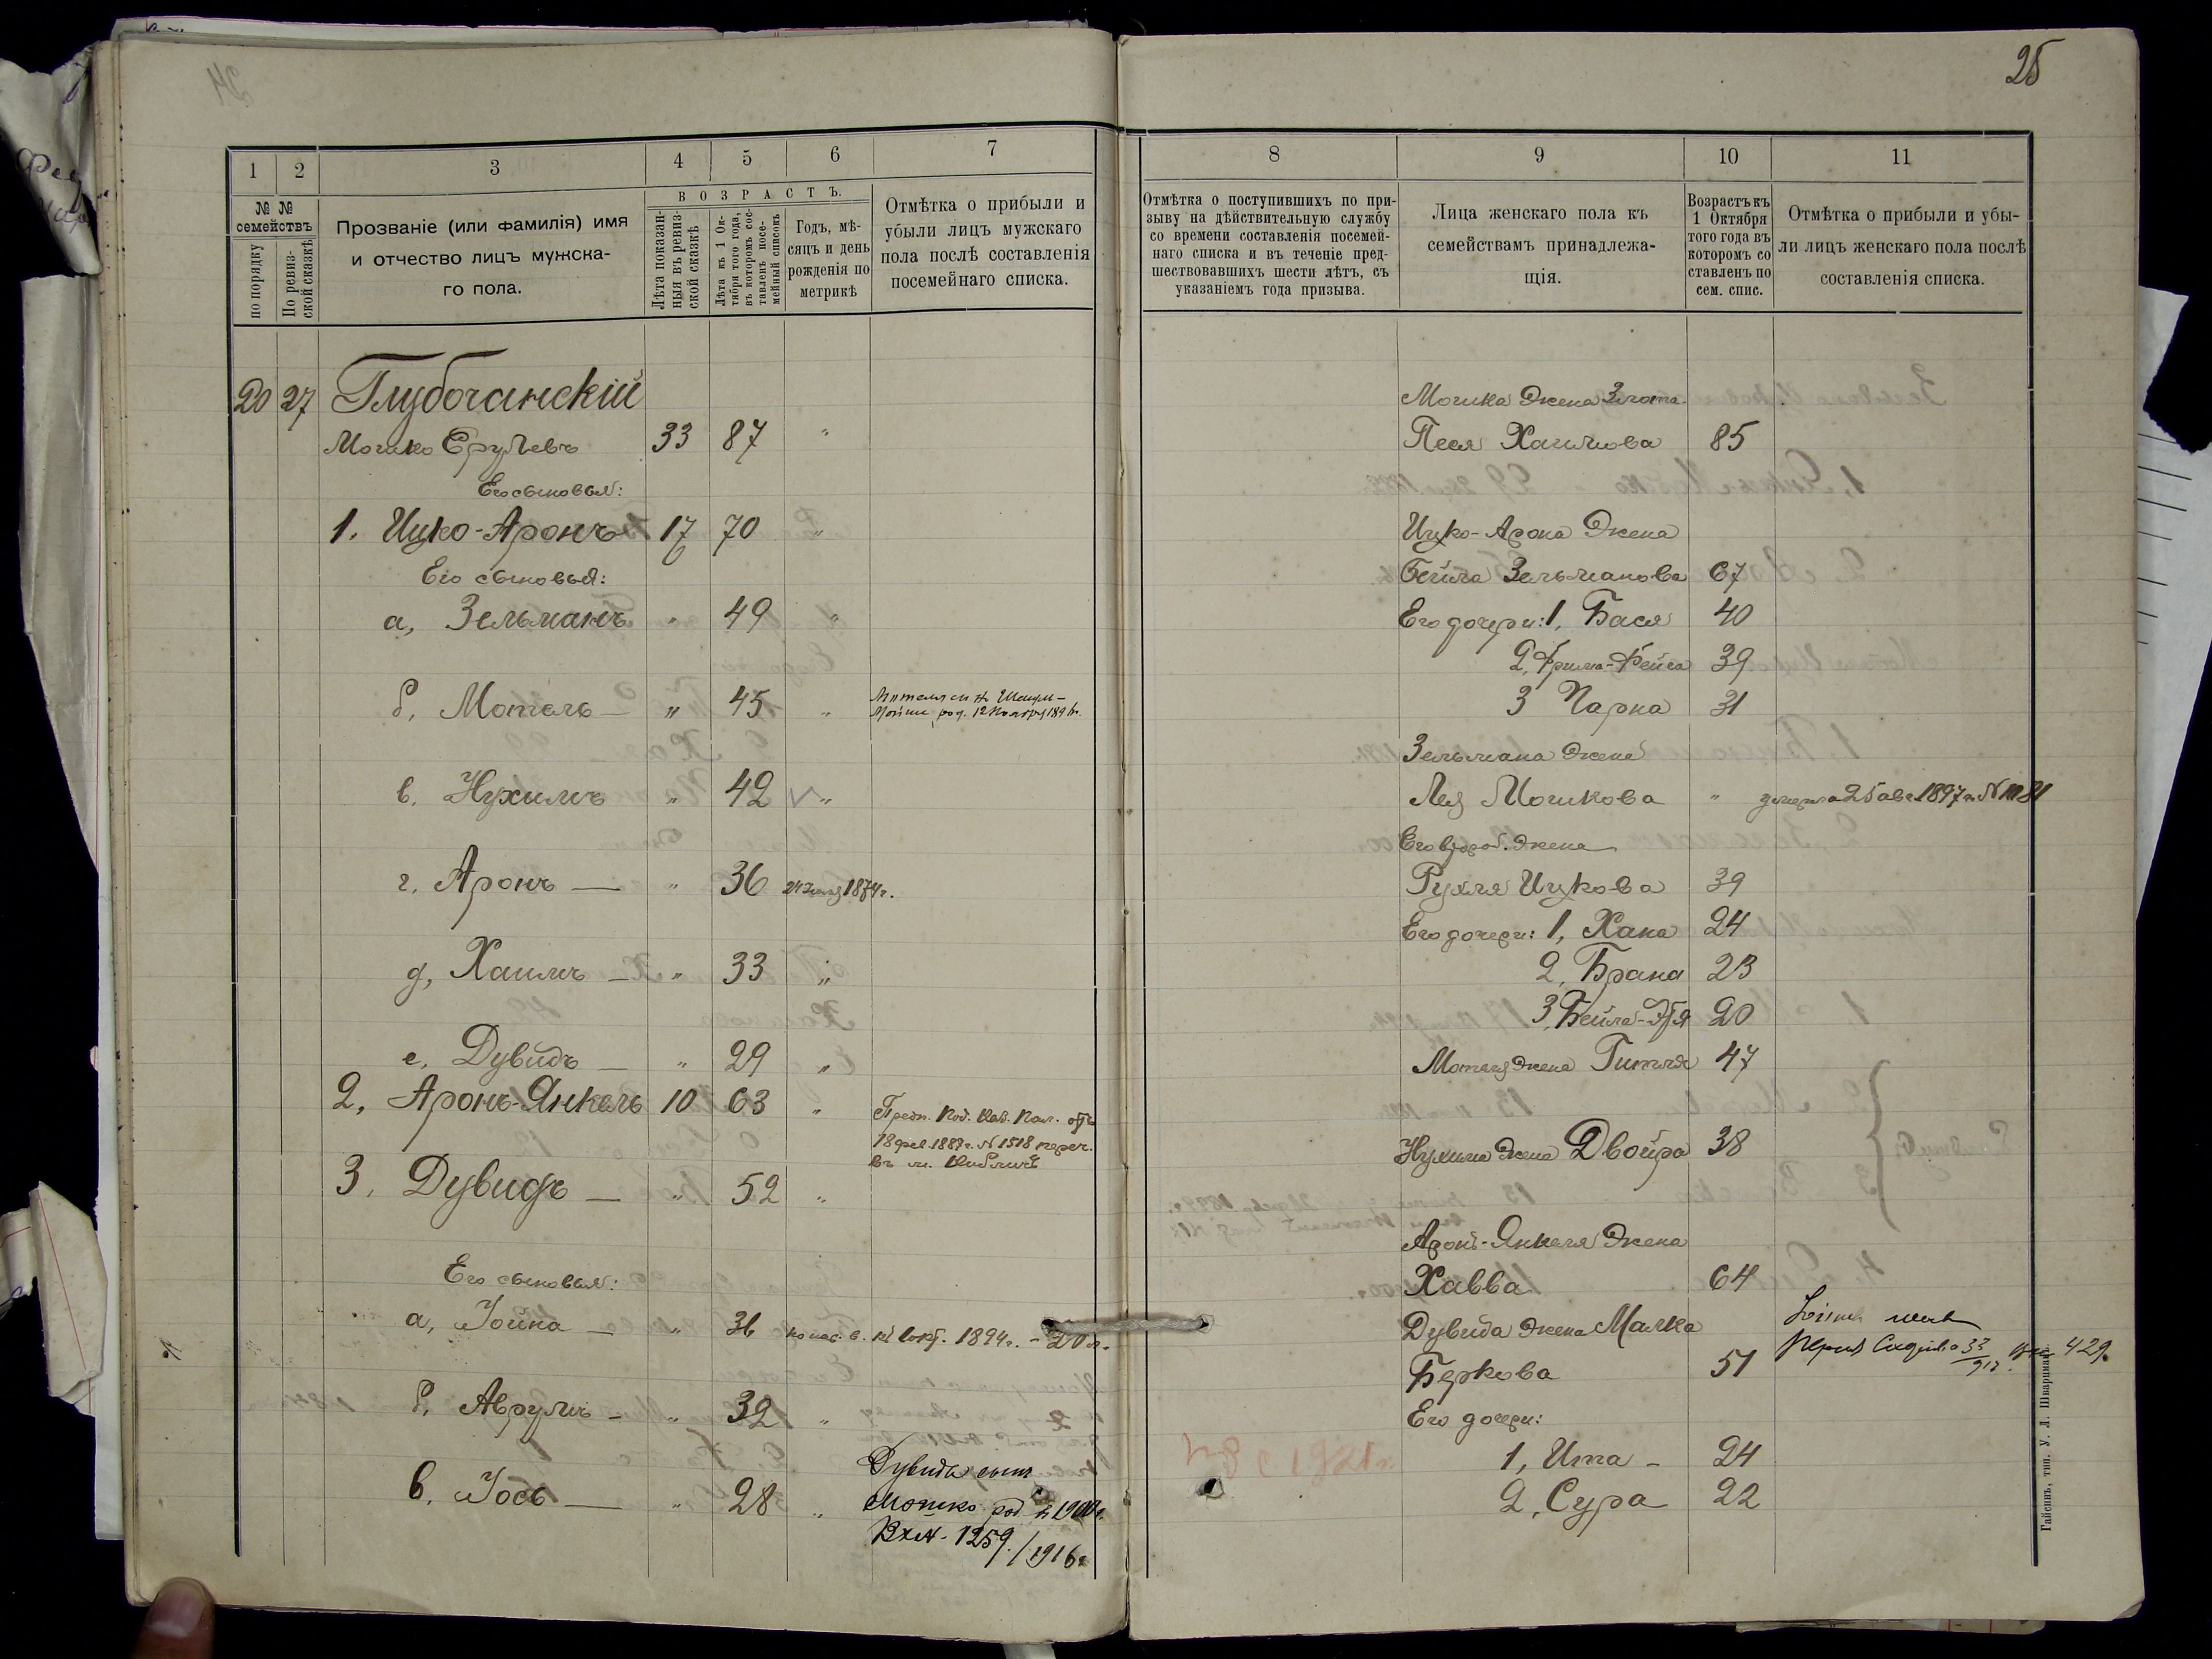 25
1
2
3
4
5
6
7
№ №
семействъ
по порядку
По ревиз-
ской сказкѣ
Прозваніе (или фамилія) имя
и отчество лицъ мужска-
го пола.
ВОЗРАСТЪ.
Лѣта показан-
ныя въ ревиз-
ской сказкѣ
Лѣта къ 1 Ок-
тября того года,
въ которомъ сос-
тавленъ посе-
мейный списокъ
Годъ, мѣ-
сяцъ и день
рожденія по
метрикѣ
Отмѣтка о прибыли и
убыли лицъ мужскаго
пола послѣ составленія
посемейнаго списка.
20 27 Глубочанскій
Мошко Срулевъ 33 87 "
Его сыновья:
1. Ицко-Аронъ 17 70 "
Его сыновья:
а, Зельманъ " 49 "
б, Мотель " 45 "
род. 12 Ноября
в. Нухимъ " 42 "
г. Аронъ — " 36 1874г.
д, Хаимъ — " 33 "
е. Дувидъ — " 29 "
2. Аронъ-Янкель 10 63 "
Пред. Под. Каз. Пал. отъ
18 фев. 1887г. № 1518 переч.
въ м.
3. Дувидъ — " 52 "
Его сыновья:
а, Іойна — " 36 1894г. - 20 л.
б. Аврумъ — " 32 "
в. Іось — " 28 "
Дувида сынъ
Мошко род. в 1900г.
Вх № 1259./1916г
8
9
10
11
Отмѣтка о поступившихъ по при-
зыву на дѣйствительную службу
со времени составленія посемей-
наго списка и въ теченіе пред-
шествовавшихъ шести лѣтъ, съ
указаніемъ года призыва.
Лица женскаго пола къ
семействамъ принадлежа-
щія.
Возрастъ къ
1 Октября
того года въ
которомъ со
ставленъ по
сем. спис.
Отмѣтка о прибыли и убы-
ли лицъ женскаго пола послѣ
составленія списка.
Мошка жена Злота
Песя Хаимова 85
Ицко-Арона жена
Бейла Зельманова 67
Его дочери: 1, Бася 40
2, Фрима-Фейга 39
3 Чарна 31
Зельмана жена
Лея Мошкова " умерла 25 авг. 1897г. №
Его втор. жена
Рухля Ицкова 39
Его дочери: 1, Хана 24
2, Брана 23
3, Бейла- 20
Мотеля жена Гитля 47
Нухима жена Двойра 38
Аронъ-Янкеля жена
Хавва 64
Дувида жена Малка
Беркова 51
429.
Его дочери:
1, Ита — 24
2, Сура 22
Гайсинъ, тип. У. Л. Шварцмана.